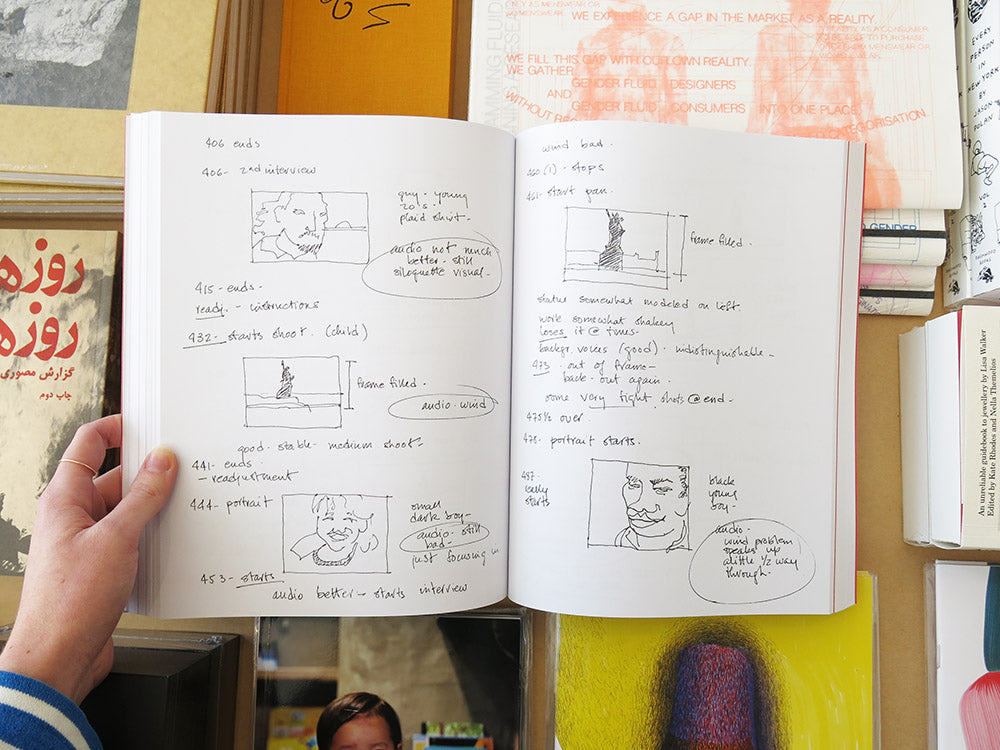 406 ends
406- 2nd interview
guy - young
20's -
plaid shirt -
audio not much
better - still
siloquette visual -
415 - ends -
ready - instructions
432 - starts shoot. (child)
frame filled.
audio - wind
good - stable - medium shoot -
441 - ends
- readjustment
444 - portrait
small
dark boy -
audio still
bad -
just focusing in
453 - starts
audio better - starts interview
wind bad.
460 (1) - stops
461 - start pan.
frame filled.
statue somewhat modeled on left.
work somewhat shakey
loses it @ times -
backgr. voices (good) - indistinguishable -
473 . out of frame -
back - out again.
some very tight shots @ end -
475 1/2 over.
478 - portrait starts.
487 -
really
starts
black
young
boy -
audio -
wind problem
speaks up
a little 1/2 way
through.
WE EXPERIENCE A GAP IN THE MARKET AS A REALITY.
WE FILL THIS GAP WITH OUR OWN REALITY.
WE GATHER
GENDER FLUID DESIGNERS
AND
GENDER FLUID CONSUMERS INTO ONE PLACE,
CATEGORISATION.
GENDER
EVERY
PERSON
IN
NEW YORK
BY
JASON
POLAN
VOL
An unreliable guidebook to jewellery by Lisa Walker
Edited by Kate Rhodes and Nella Themelios
گزارش مصوری
چاپ دوم